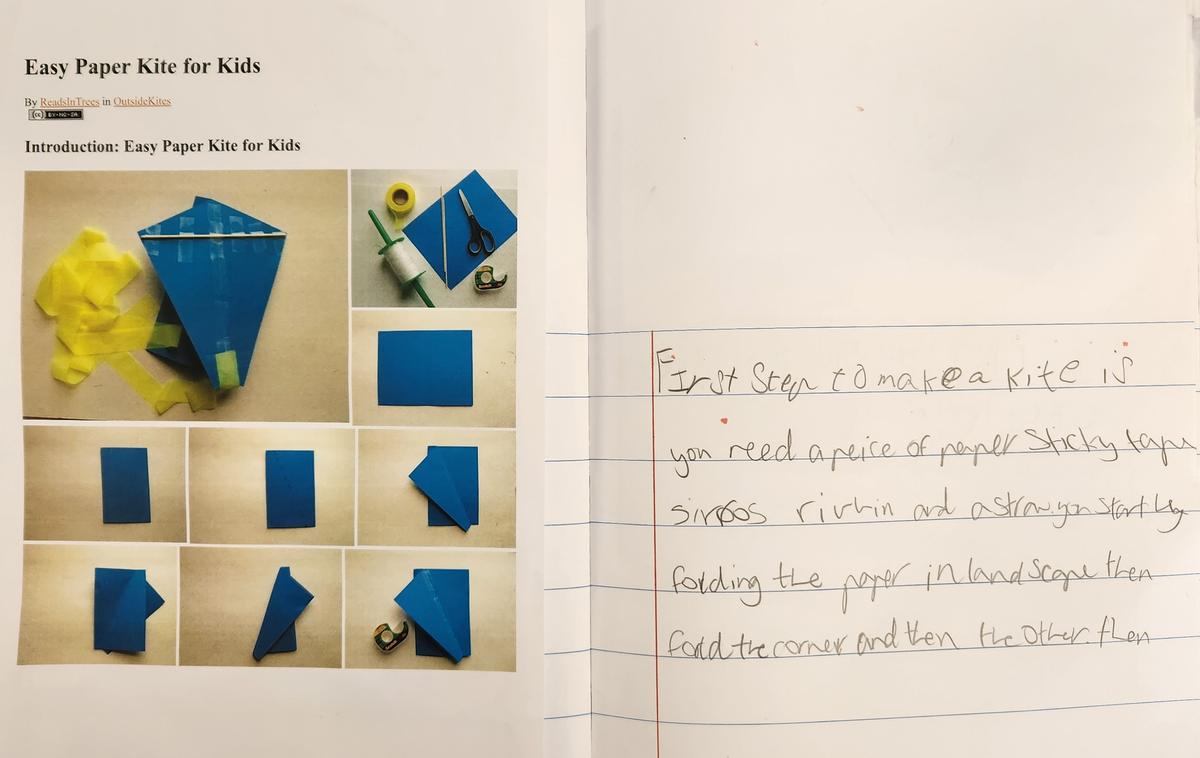 Easy Paper Kite for Kids
By ReadsInTrees in OutsideKites
(cc) BY-NC-SA
Introduction: Easy Paper Kite for Kids
First Step to make a kite is
you need a peice of paper Sticky tape
sirpos rivhin and a straw. you start by
folding the paper in land Scape then
foald the corner and then the other. then